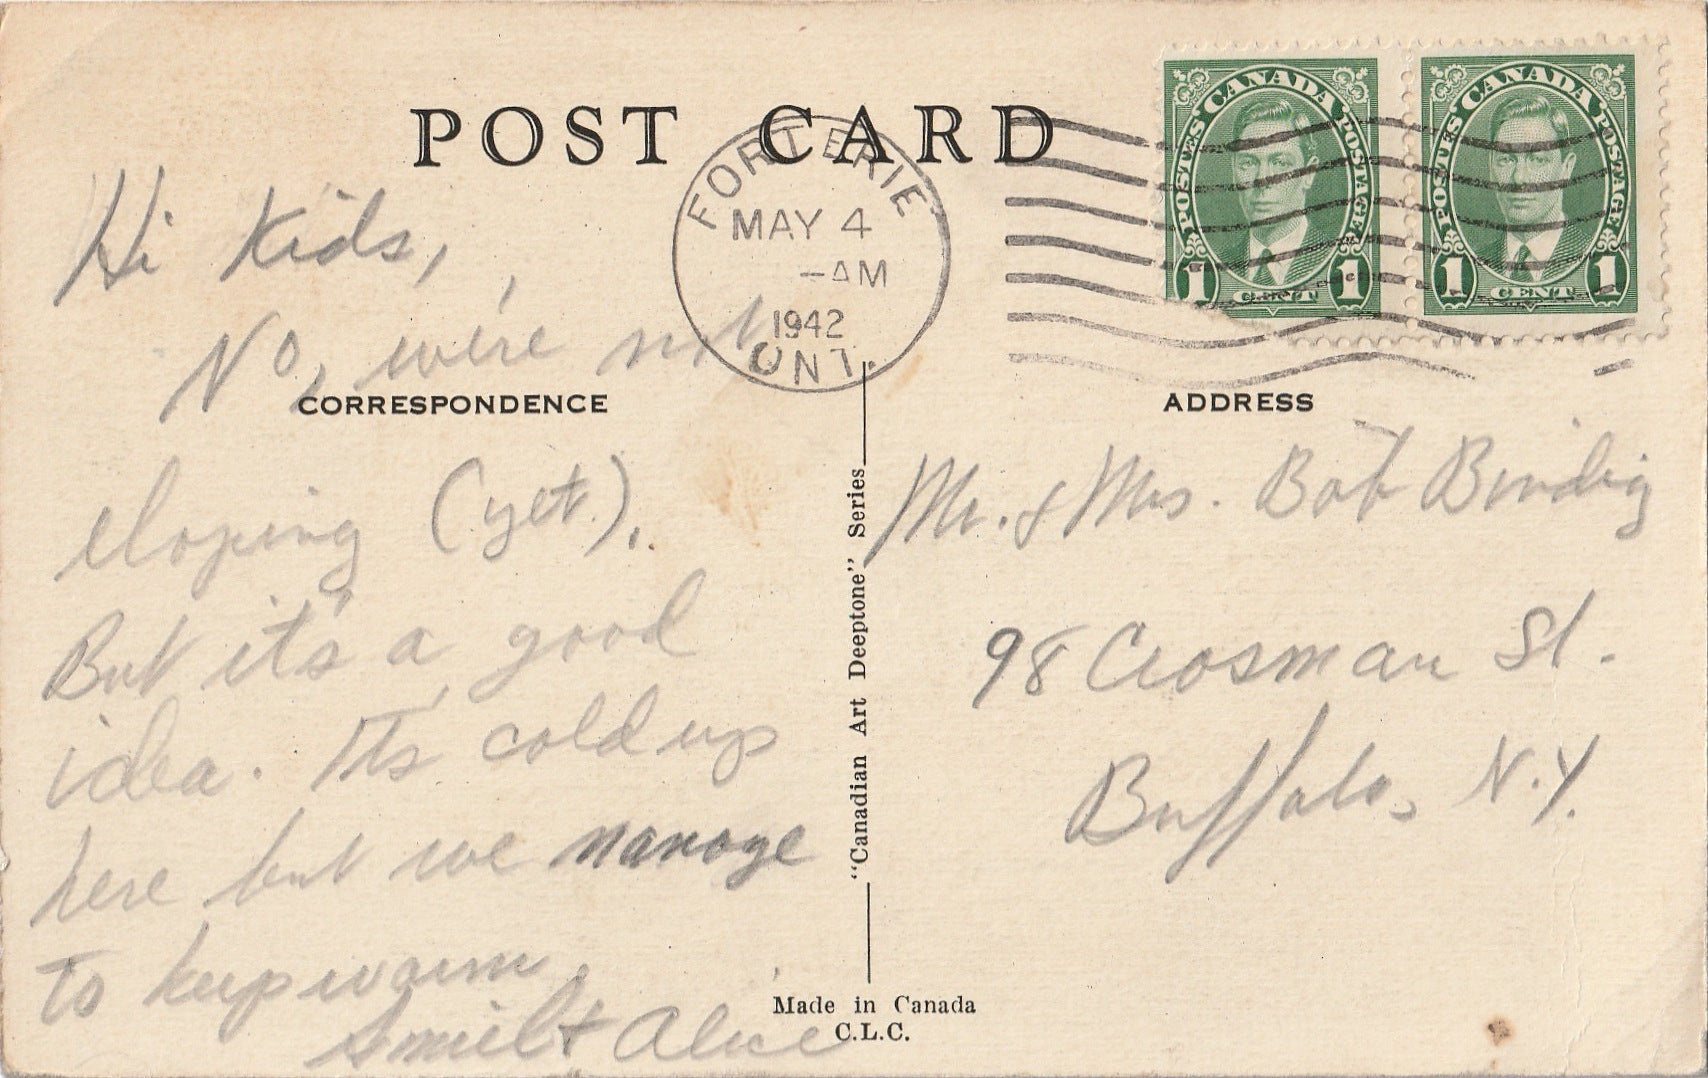 POST CARD
FORT ERIE
MAY 4
-AM
1942
ONT.
CANADA
POSTES POSTAGE
1 CENT 1
CANADA
POSTES POSTAGE
1 CENT 1
Hi Kids,
No, we're not
CORRESPONDENCE
eloping (yet).
But it's a good
idea. Its cold up
here but we manage
to keep warm.
& Alice
"Canadian Art Deeptone" Series
Made in Canada
C.L.C.
ADDRESS
Mr. & Mrs. Bob Bindig
98 Crosman St.
Buffalo, N.Y.